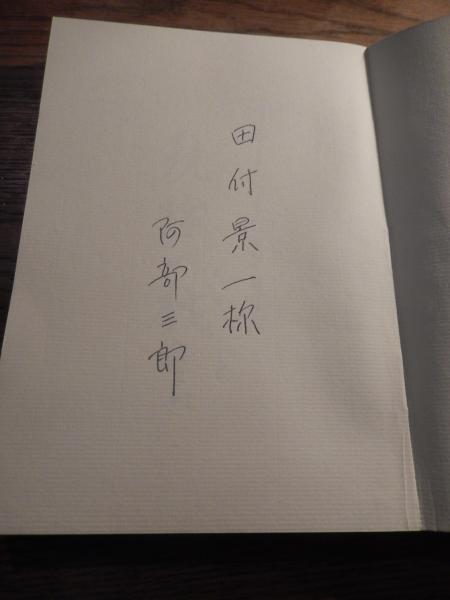 田付景一様
阿部三郎